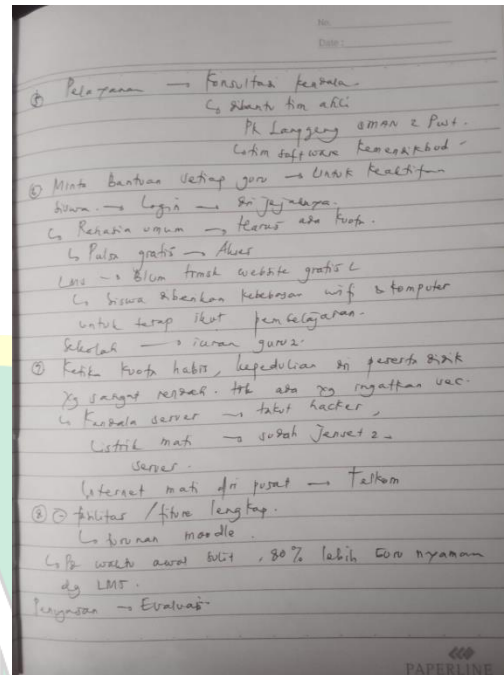 No.
Date:
⑤ Pelayanan → Konsultasi kendala.
↳ dibantu tim ahli
Pk Langgeng SMAN 2 Pwt.
↳ tim software Kemendikbud
⑥ Minta Bantuan setiap guru → untuk keaktifan
siswa. → Login →
↳ Rahasia umum → Harus ada kuota.
↳ Pulsa gratis → Akses
LMS → Blum trmsk website gratis
↳ Siswa diberikan kebebasan wifi & komputer
untuk tetap ikut pembelajaran.
Sekolah → iuran guru2.
⑦ Ketika kuota habis, kepedulian dri peserta didik
yg sangat rendah. tdk ada yg ingatkan
↳ Kendala server → takut hacker,
Listrik mati → sudah Jenset 2
server.
Internet mati dri pusat → Telkom
⑧ fasilitas / fiture lengkap.
↳ turunan moodle.
↳ Pd waktu awal sulit, 80% lebih guru nyaman
dg LMS.
→ Evaluasi
PAPERLINE